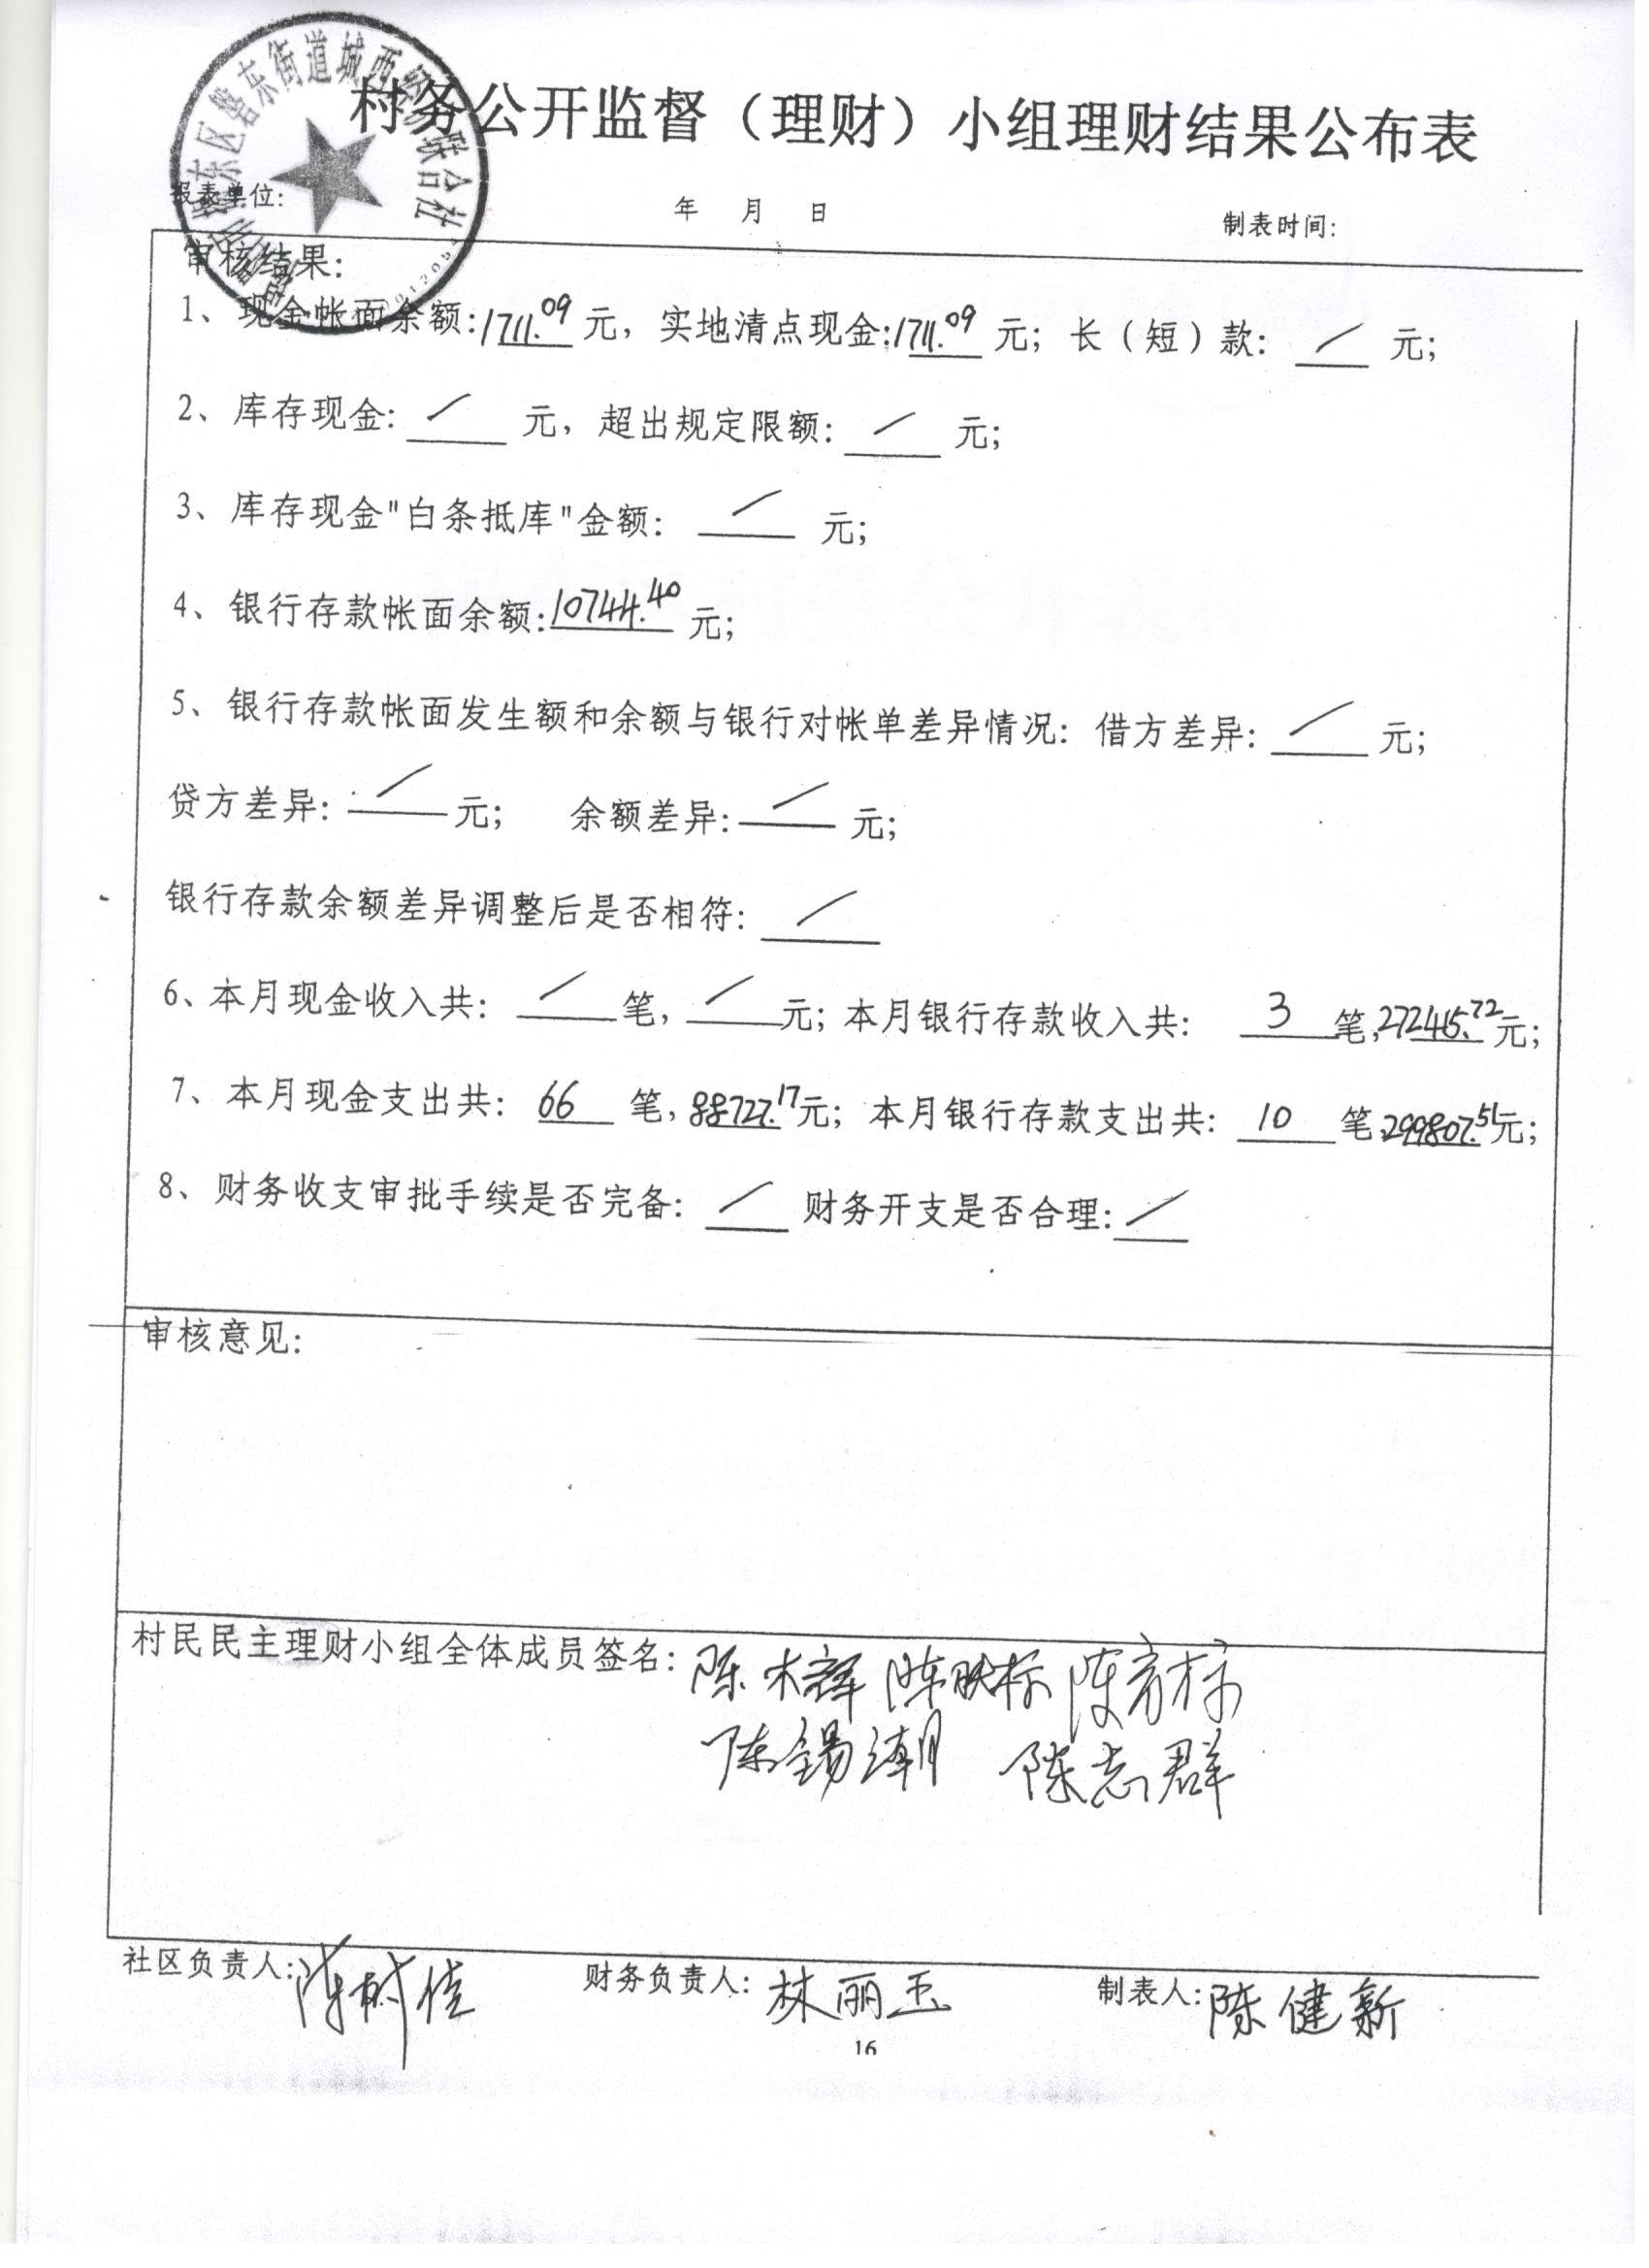 村务公开监督（理财）小组理财结果公布表
东区磐东街道城西经济联合社
报表单位: 年 月 日 制表时间:
审核结果:
1、现金帐面余额:1711.09元，实地清点现金:1711.09元；长（短）款: / 元；
2、库存现金: / 元，超出规定限额: / 元；
3、库存现金"白条抵库"金额: / 元；
4、银行存款帐面余额:10744.40元；
5、银行存款帐面发生额和余额与银行对帐单差异情况：借方差异: / 元；
贷方差异: / 元； 余额差异: / 元；
银行存款余额差异调整后是否相符: /
6、本月现金收入共: / 笔, / 元；本月银行存款收入共: 3 笔,272415.72元；
7、本月现金支出共: 66 笔,88727.17元；本月银行存款支出共: 10 笔299807.51元；
8、财务收支审批手续是否完备: / 财务开支是否合理: /
审核意见:
村民民主理财小组全体成员签名: 陈木辉 陈映标 陈彦标
陈锡潮 陈志群
社区负责人: 陈树佳 财务负责人: 林丽玉 制表人: 陈健新
16